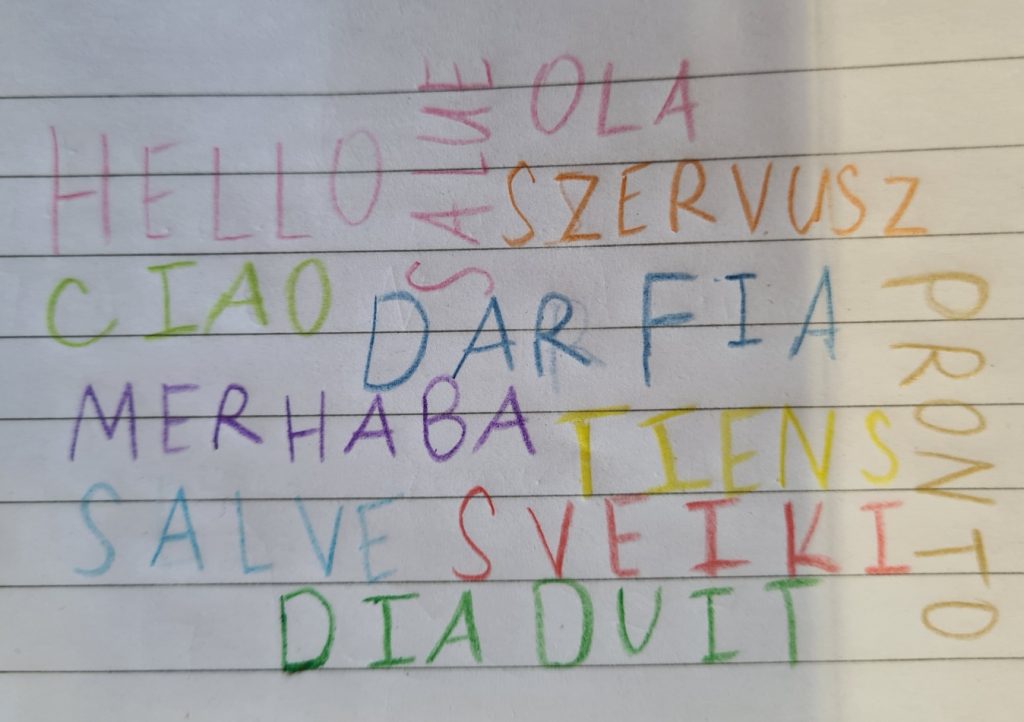 OLA
HELLO
SALUE
SZERVUSZ
CIAO
DAR FIA
PRONTO
MERHABA
TIENS
SALVE
SVEIKI
DIA DUIT